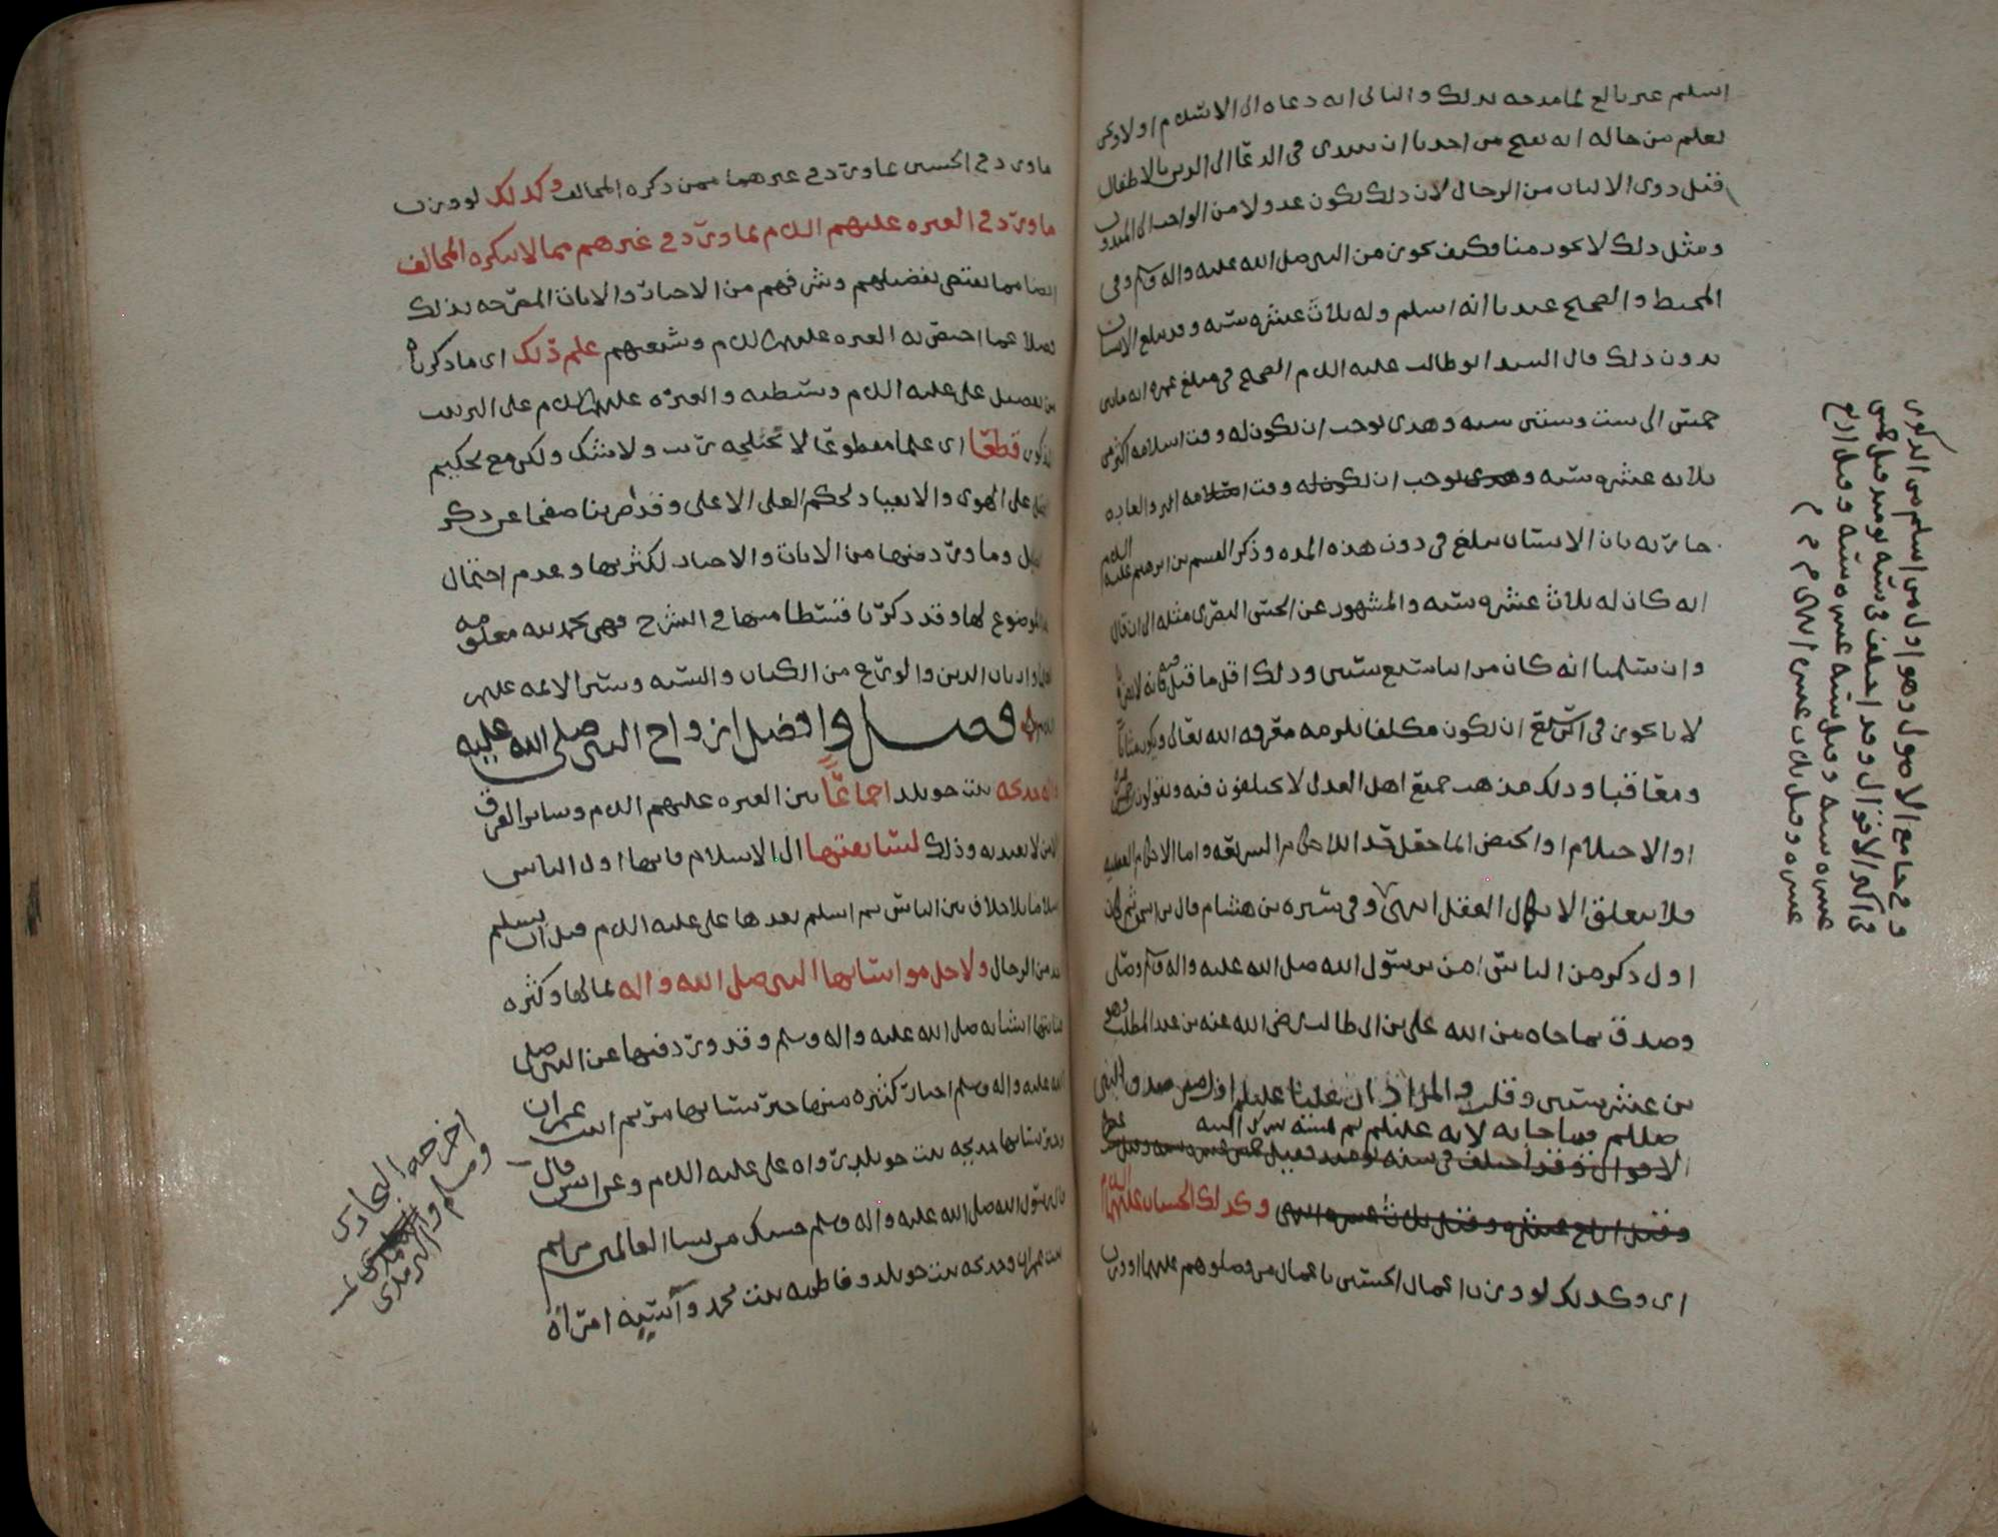 اسلم غير بالغ لما مدحه بذلك والثاني انه دعاه الى الاسلام اولا ولم
يعلم من حاله انه يصح من احدنا ان يبتدي في الدعا الى الدين بالاطفال
قبل ذوي الالباب من الرجال لان ذلك يكون عدولا من الواجب الى المندوب
ومثل ذلك لا يجوز منا فكيف يجوز من النبي صلى الله عليه واله وسلم وفي
المحيط والصحيح عندنا انه اسلم وله ثلاث عشره سنه وقد يبلغ الانسان
بدون ذلك قال السيد ابو طالب عليه السلم الصحيح في مبلغ عمره انه مابين
خمس الى ست وستين سنه وهذى يوجب ان يكون له وقت اسلامه اكثر من
ثلاثه عشره سنه وهذى يوجب ان يكون له وقت اسلامه والعاده
جاريه بان الانسان يبلغ في دون هذه المده وذكر القسم بن ابرهيم عليه السلم
انه كان له ثلاث عشره سنه والمشهور عن الحسن البصري مثله الى ان قال
وان سلمنا انه كان من ابنا سبع سنين وذلك اقل ما قيل فيه فانه لا يمنع
لانا نجوز في ابن سبع ان يكون مكلفا تلزمه معرفه الله تعالى ويكون مثابا
ومعاقبا وذلك مذهب جميع اهل العدل لا يختلفون فيه ويقولون
او الاحتلام او الحيض انما جعل الاحكام الشريعه واما الاحكام العقليه
فلا يتعلق الا بكمال العقل انتهى وفي سيره بن هشام قال بن اسحق ثم كان
اول ذكر من الناس امن برسول الله صلى الله عليه واله وسلم وصلى
وصدق بما جاه من الله علي بن ابي طالب رضي الله عنه بن عبد المطلب وهو
بن عشر سنين وقلت والمراد ان عليا عليلم اول من صدق النبي
صللم فيما جا به لانه عليلم لم
الاقوال وقد اختلف في سنه يومئذ فقيل خمس عشره سنه وقيل
وقيل اربع عشره وقيل ثلاث عشره انتهى وكذلك الحسنان عليهما السلم
اى وكذلك لو وزن اعمال الحسنين باعمال من فضلوهم عليهما او وزن
وفي جامع الاصول وهو اول من اسلم من الذكور
في اكثر الاقوال وقد اختلف في سنه يومئذ فقيل خمس
عشره سنه وقيل سته عشره سنه وقيل اربع
عشره وقيل ثلاث عشره انتهى م م م
ماورد في الحسنين بماورد في غيرهما ممن ذكره المخالف وكذلك لو وزن
ماورد في العتره عليهم السلم بماورد في غيرهم مما لا ينكره المخالف
ايضا مما يقتضي تفضيلهم وشرفهم من الاخبار والايات المصرحه بذلك
فضلا عما اختص به العتره عليهم السلم وشيعتهم علم ذلك اى ما ذكرناه
من تفضيل علي عليه السلم وسبطيه والعتره عليهم السلم على الترتيب
المذكور قطعا اى علما مقطوعا لا تختلجه ريب ولا شك ولكن مع تحكيم
العقل على الهوى والانقياد لحكم العلي الاعلى وقد ضربنا صفحا عن ذكر
وما ورد فيها من الايات والاخبار لكثرتها وعدم احتمال
الموضوع لها وقد ذكرنا قسطا منها في الشرح فهي بحمد الله معلومه
وارباب الدين والورع من الكتاب والسنه وسير الائمه عليهم
السلم فصل وافضل ازواج النبي صلى الله عليه
واله خديجه بنت خويلد اجماعا بين العتره عليهم السلم وساير الفرق
الا من لا يعتد به وذلك لسابقتها الى الاسلام فانها اول الناس
اسلاما بلا خلاف بين الناس ثم اسلم بعدها علي عليه السلم قبل ان يسلم
احد من الرجال ولاجل مواساتها النبي صلى الله واله بمالها وكثره
عنايتها بشانه صلى الله عليه واله وسلم وقد ورد فيها عن النبي صلى
الله عليه واله وسلم اخبار كثيره منها خير نسائها مريم ابنت عمران
وخير نسائها خديجه بنت خويلد رواه علي عليه السلم وعن انس قال
قال رسول الله صلى الله عليه واله وسلم حسبك من نسا العالمين مريم
بنت عمران وخديجه بنت خويلد وفاطمه بنت محمد وآسيه امرأة
اخرجه البخاري
ومسلم والترمذي